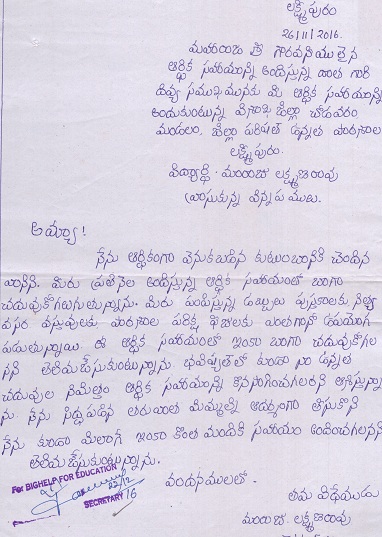 లక్ష్మీపురం
26/11/2016.
గౌరవనీయులైన
ఆర్థిక సహాయాన్ని అందిస్తున్న దాత గారి
దివ్య సముఖమునకు మీ ఆర్థిక సహాయాన్ని
అందుకుంటున్న విశాఖ జిల్లా చోడవరం
మండలం, జిల్లా పరిషత్ ఉన్నత పాఠశాల
లక్ష్మీపురం.
విద్యార్థి లక్ష్మణరావు
వ్రాసుకున్న విన్నపము.
అమ్మా!
నేను ఆర్థికంగా వెనుకబడిన కుటుంబానికి చెందిన
వాడిని. మీరు ప్రతినెల అందిస్తున్న ఆర్థిక సహాయంతో బాగా
చదువుకోగలుగుతున్నాను. మీరు పంపిస్తున్న డబ్బులు పుస్తకాలకు నిత్యా
వసర వస్తువులకు పాఠశాల పరీక్ష ఫీజులకు ఎంతగానో ఉపయోగ
పడుతున్నాయి. ఈ ఆర్థిక సహాయంతో ఇంకా బాగా చదువుకోగల
నని తెలియజేసుకుంటున్నాను. భవిష్యత్‌లో కూడా నా ఉన్నత
చదువుల నిమిత్తం ఆర్థిక సహాయాన్ని కొనసాగించగలరని ఆశిస్తున్నా
ను. నేను సిద్ధపడిన తరువాత మిమ్మల్ని ఆదర్శంగా తీసుకొని
నేను కూడా మీలాగే ఇంకా కొంత మందికి సహాయం అందించగలనని
తెలియజేసుకుంటున్నాను.
వందనములతో.
For BIGHELP FOR EDUCATION
22/12
16
SECRETARY
తమ విధేయుడు
లక్ష్మణరావు